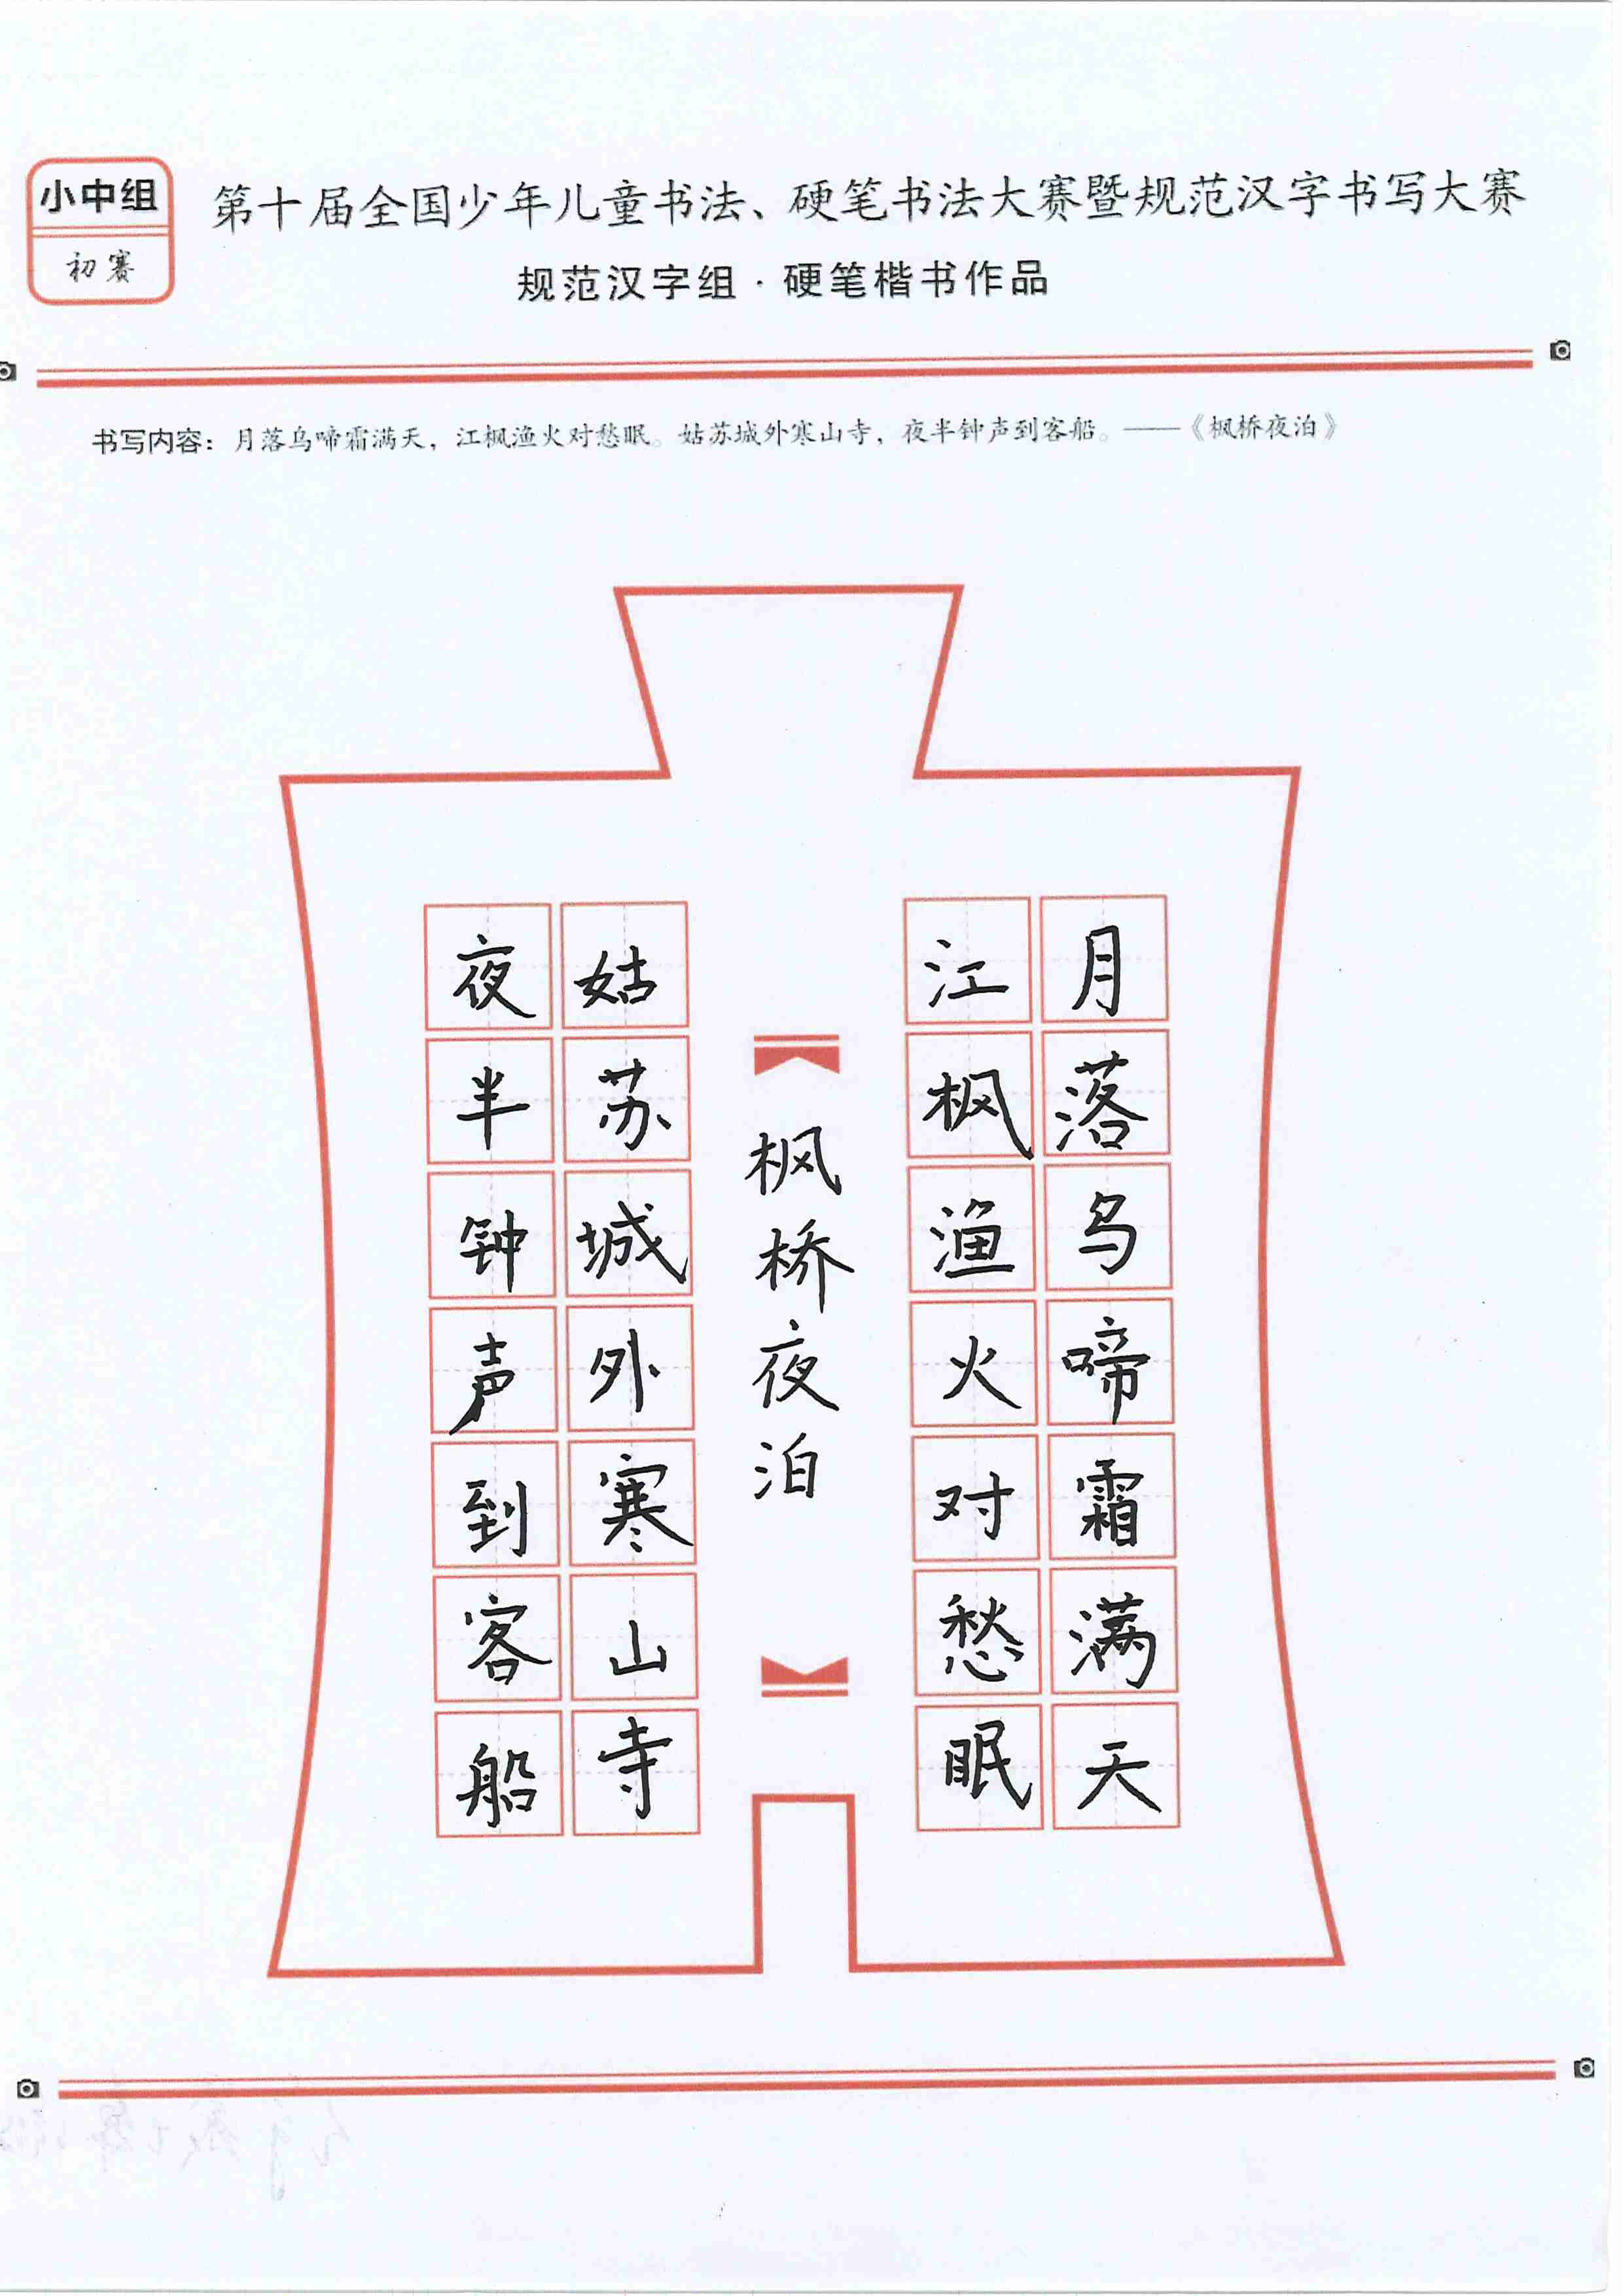 小中组
初赛
第十届全国少年儿童书法、硬笔书法大赛暨规范汉字书写大赛
规范汉字组·硬笔楷书作品
书写内容：月落乌啼霜满天，江枫渔火对愁眠。姑苏城外寒山寺，夜半钟声到客船。——《枫桥夜泊》
月落乌啼霜满天
江枫渔火对愁眠
枫桥夜泊
姑苏城外寒山寺
夜半钟声到客船